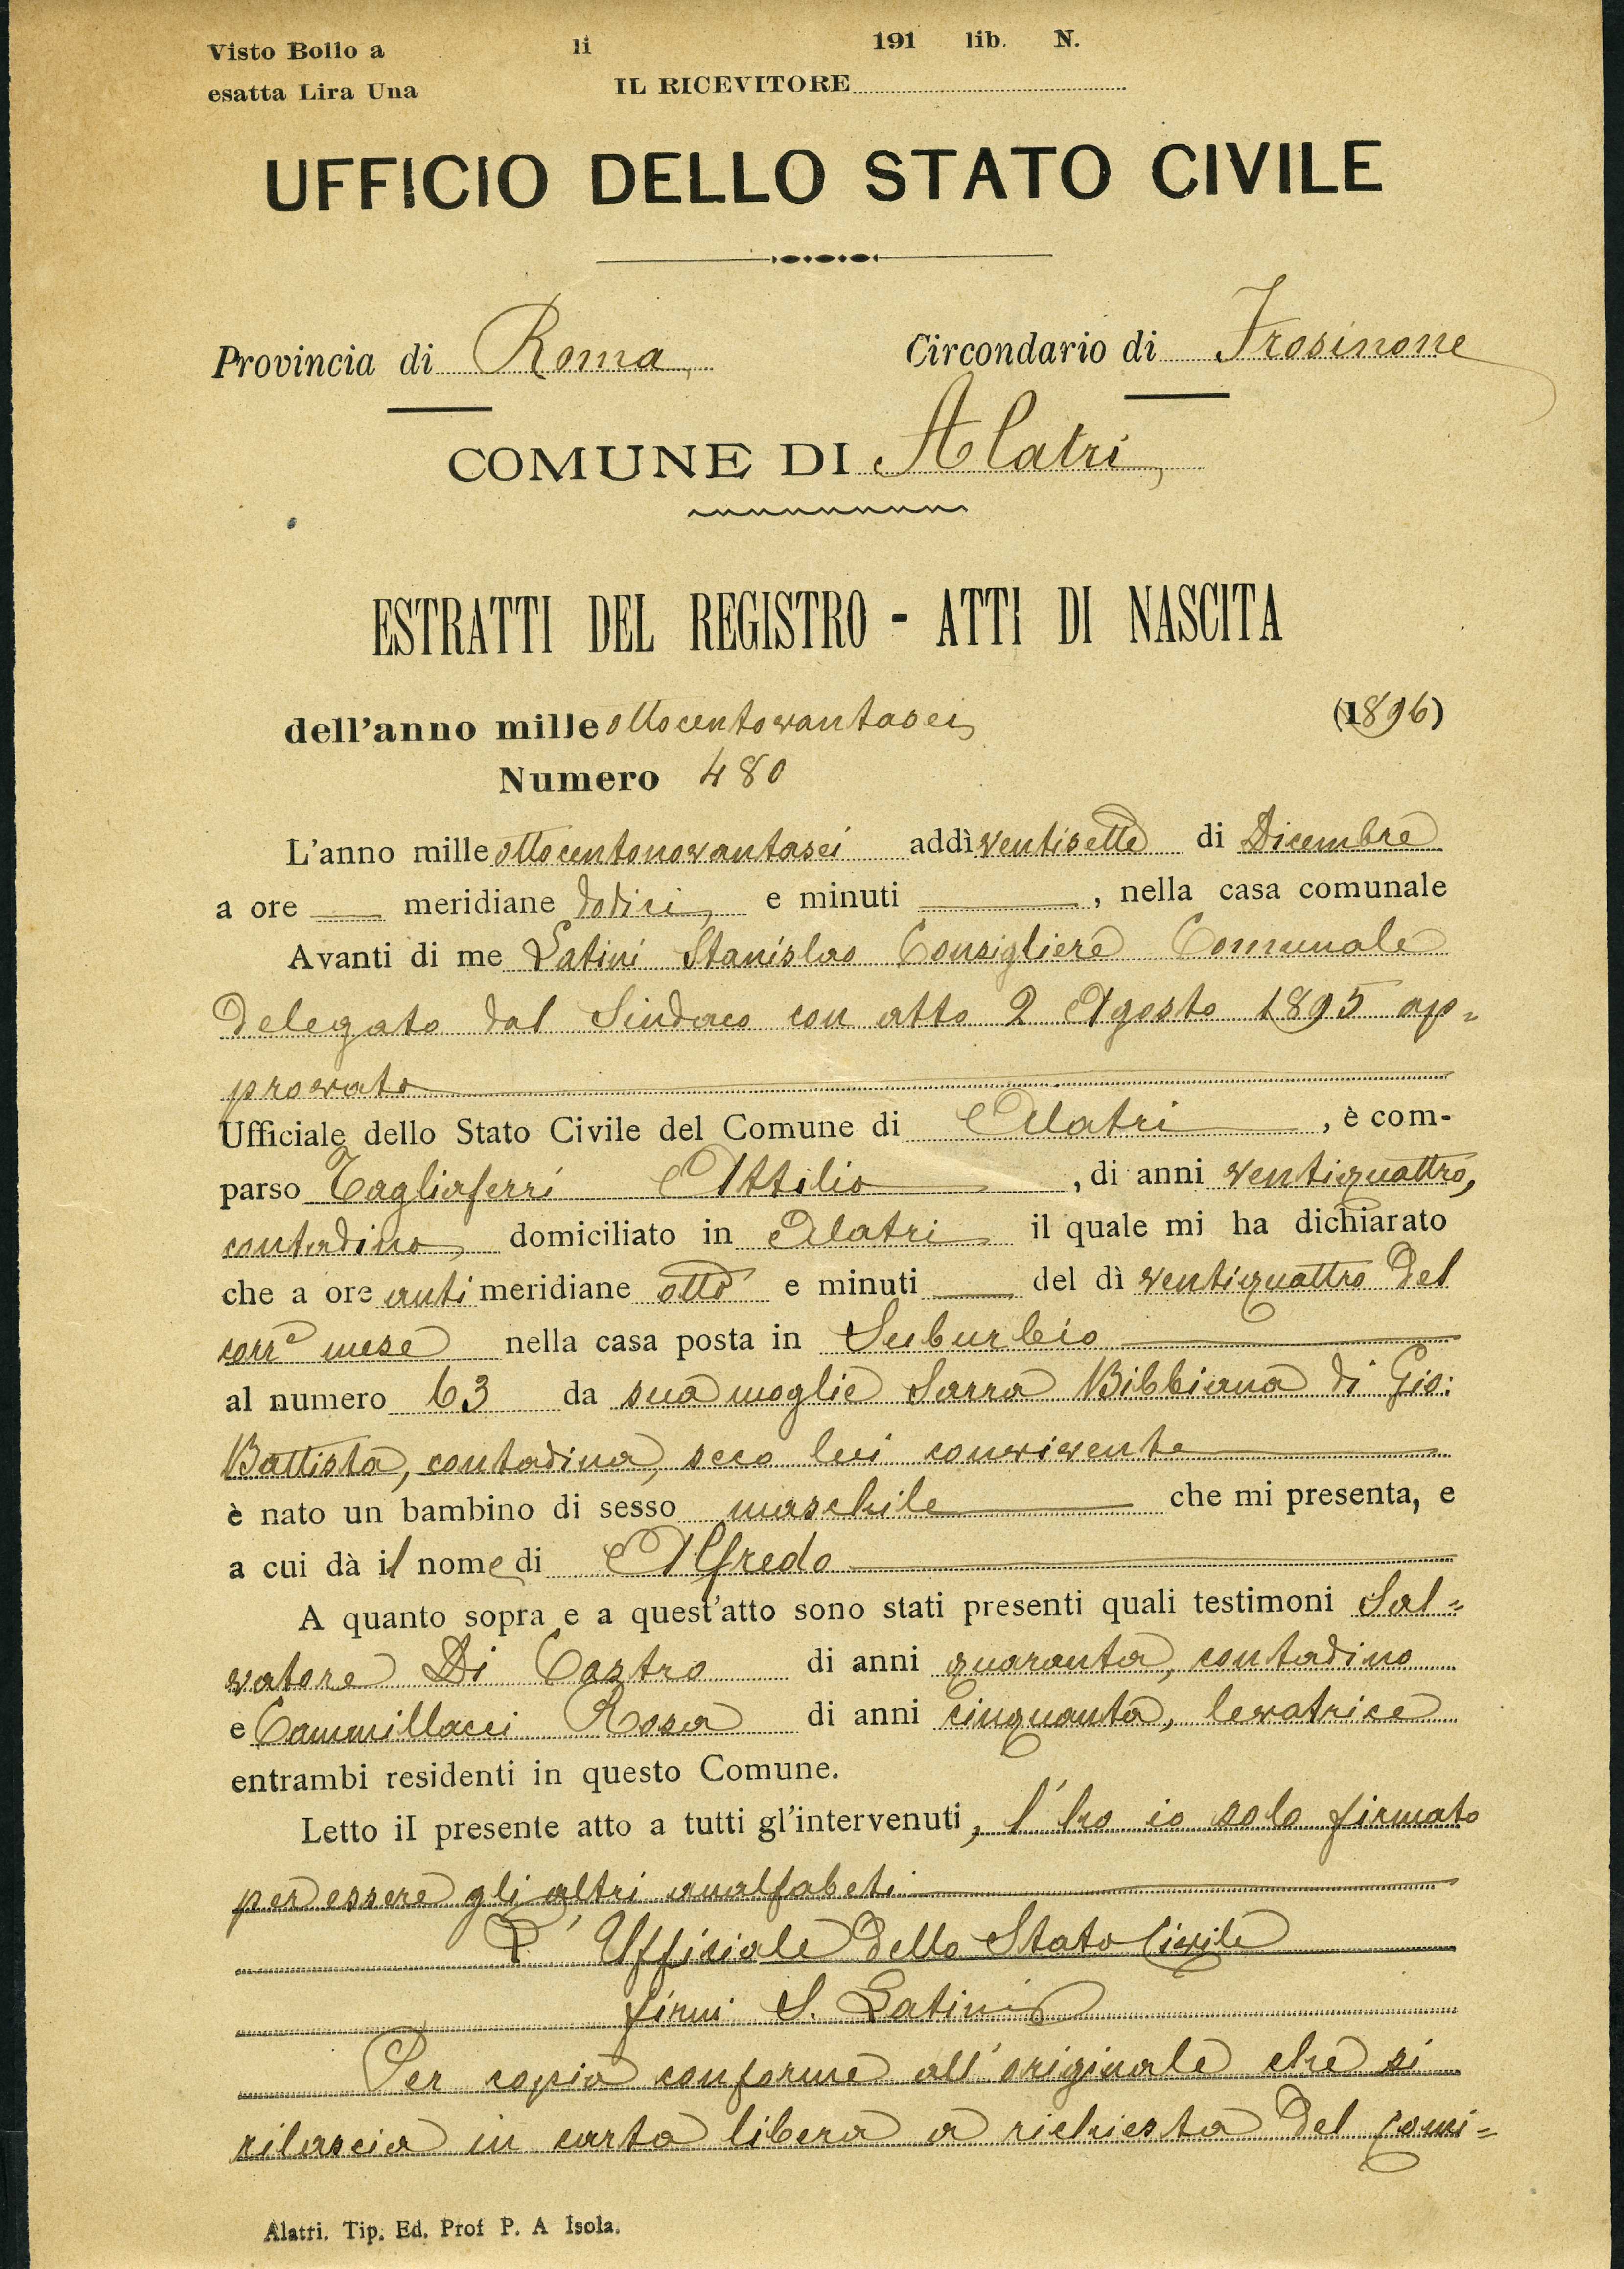 Visto Bollo a li 191 lib. N.
esatta Lira Una IL RICEVITORE
UFFICIO DELLO STATO CIVILE
Provincia di Roma, Circondario di Frosinone
COMUNE DI Alatri,
ESTRATTI DEL REGISTRO - ATTI DI NASCITA
dell'anno mille ottocentovantasei, (1896)
Numero 480
L'anno mille ottocentonovantasei addì ventisette di Dicembre
a ore meridiane dodici, e minuti , nella casa comunale
Avanti di me Latini Stanislao Consigliere Comunale
delegato dal Sindaco con atto 2 Agosto 1895 ap=
provato
Ufficiale dello Stato Civile del Comune di Alatri , è com-
parso Tagliaferri Attilio , di anni ventiquattro,
contadino, domiciliato in Alatri il quale mi ha dichiarato
che a ore anti meridiane otto e minuti del dì ventiquattro del
corr.e mese nella casa posta in Suburbio
al numero 63 da sua moglie Sarra Bibbiana di Gio:
Battista, contadina, seco lui convivente
è nato un bambino di sesso maschile che mi presenta, e
a cui dà il nome di Alfredo
A quanto sopra e a quest'atto sono stati presenti quali testimoni Sal=
vatore Di Castro di anni quaranta, contadino
e Cammillacci Rosa di anni cinquanta, levatrice
entrambi residenti in questo Comune.
Letto il presente atto a tutti gl'intervenuti, l'ho io solo firmato
per essere gli altri analfabeti
L'Uffiziale dello Stato Civile
firm: S. Latini
Per copia conforme all'originale che si
rilascia in carta libera a richiesta del Comi=
Alatri. Tip. Ed. Prof P. A Isola.